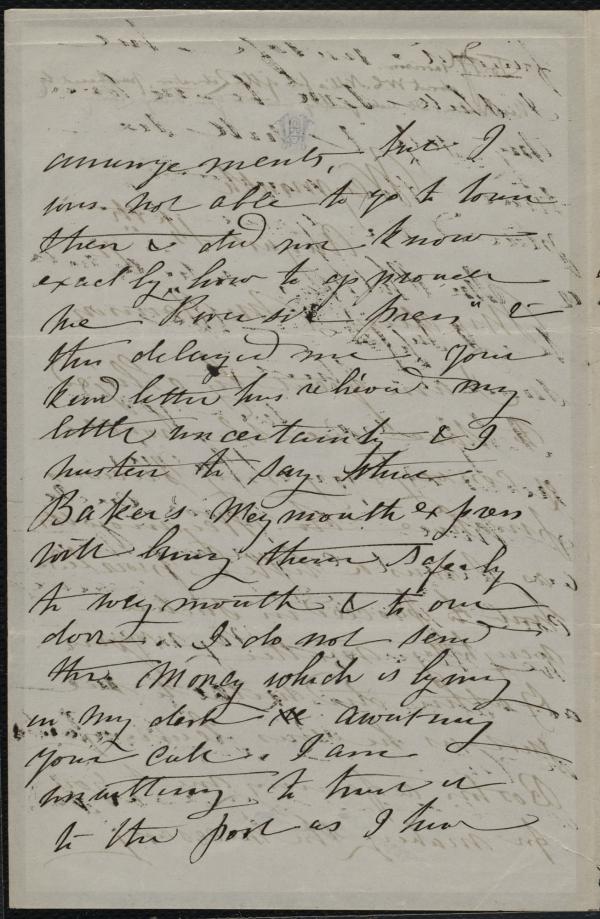 arrangements, but I
was not able to go to town
then & did not know
exactly how to approach
the "Riverside press" &
this delayed me. Your
kind letter has relieved my
little uncertainty & I
hasten to say that
Baker's Weymouth express
will bring them safely
to Weymouth & to our
door. I do not send
the money which is lying
in my desk awaiting
your call. I am
unwilling to trust it
to the post as I have